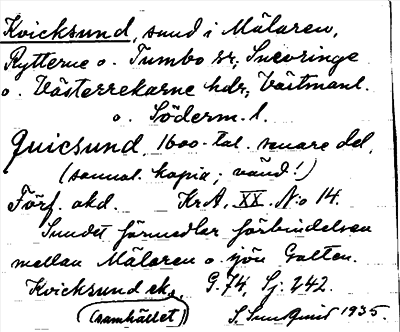 Kvicksund, sund i Mälaren,
Rytterne o. Tumbo sr, Snevringe
o. Västerrekarne hdr, Västmanl.
o. Söderm. l.
Quicsund, 1600-tal. senare del,
(samt. kopia; vänd!)
Förf. okd. KrA, XX. No 14.
Sundet förmedlar förbindelsen
mellan Mälaren o. sjön Galten.
Kvicksund ek., G. 74, Sj. 242.
(samhället) S. Sundquist 1935.